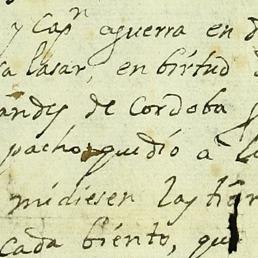 y Capn aguerra en d
sa lasar, en birtud
andes de Cordoba
pacho quedió à la
midiesen las tier
cada biento, que